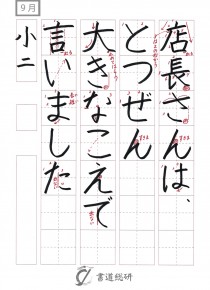 9月
店長さんは、
とつぜん
大きなこえで
言いました
小二
書道総研